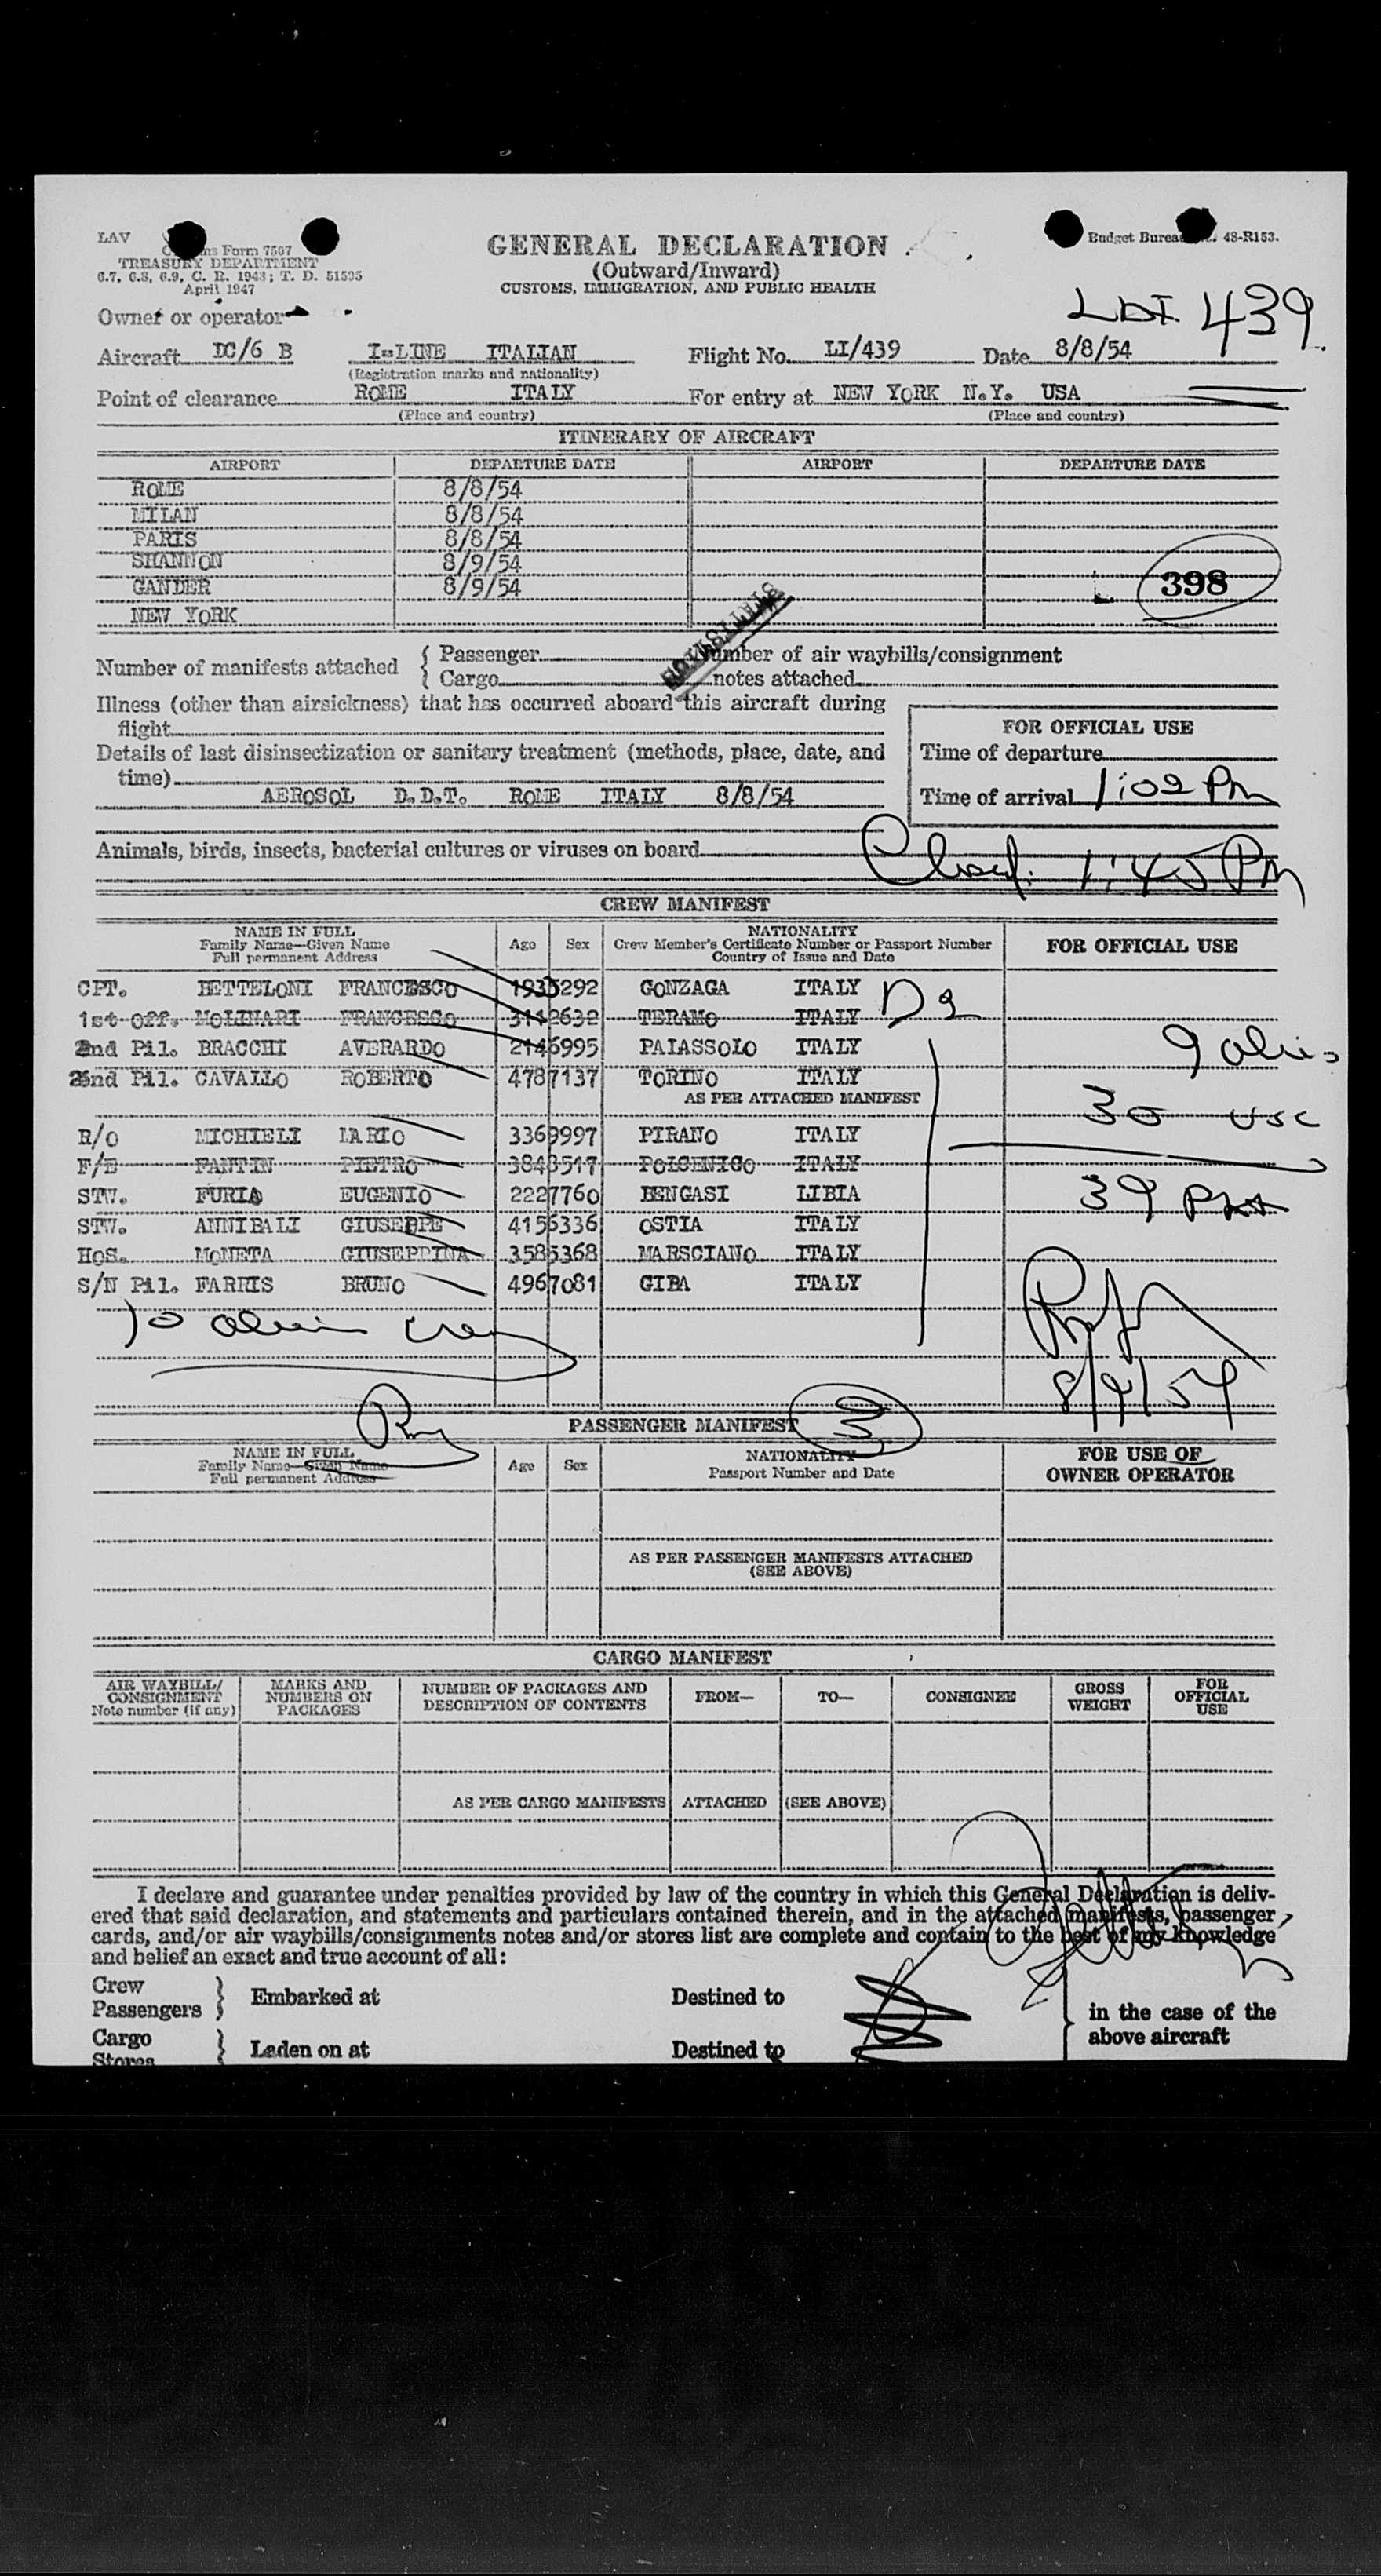 LAV
Form 7507
TREASURY DEPARTMENT
6.7, 6.8, 6.9, C. R. 1943; T. D. 51595
April 1947
GENERAL DECLARATION
(Outward/Inward)
CUSTOMS, IMMIGRATION, AND PUBLIC HEALTH
Budget Bureau 48-R153.
LDI 439
Owner or operator
Aircraft DC/6 B I-LINE ITALIAN Flight No. LI/439 Date 8/8/54
(Registration marks and nationality)
Point of clearance ROME ITALY For entry at NEW YORK N.Y. USA
(Place and country) (Place and country)
ITINERARY OF AIRCRAFT
AIRPORT DEPARTURE DATE AIRPORT DEPARTURE DATE
ROME 8/8/54
MILAN 8/8/54
PARIS 8/8/54
SHANNON 8/9/54
GANDER 8/9/54
398
NEW YORK
Number of manifests attached { Passenger Number of air waybills/consignment
{ Cargo notes attached
Illness (other than airsickness) that has occurred aboard this aircraft during
flight
Details of last disinsectization or sanitary treatment (methods, place, date, and
time)
AEROSOL D.D.T. ROME ITALY 8/8/54
FOR OFFICIAL USE
Time of departure
Time of arrival 1:02 PM
Animals, birds, insects, bacterial cultures or viruses on board
Closed. 1:45 PM
CREW MANIFEST
NAME IN FULL
Family Name—Given Name
Full permanent Address
Age Sex
NATIONALITY
Crew Member's Certificate Number or Passport Number
Country of Issue and Date
FOR OFFICIAL USE
CPT. BETTELONI FRANCESCO 1935292 GONZAGA ITALY
D2
1st Off. MOLINARI FRANCESCO 3112632 TERAMO ITALY
2nd Pil. BRACCHI AVERARDO 2146995 PALASSOLO ITALY
2nd Pil. CAVALLO ROBERTO 4787137 TORINO ITALY
AS PER ATTACHED MANIFEST
R/O MICHIELI MARIO 3369997 PIRANO ITALY
F/E FANTIN PIETRO 3848517 POLCENIGO ITALY
STW. FURIA EUGENIO 2227760 BENGASI LIBIA
STW. ANNIBALI GIUSEPPE 4156336 OSTIA ITALY
HOS. MONETA GIUSEPPINA 3585368 MARSCIANO ITALY
S/N Pil. FARRIS BRUNO 4967081 GIBA ITALY
9 alien
30 USC
39
10 alien crew
8/9/54
PASSENGER MANIFEST
3
NAME IN FULL
Family Name—Given Name
Full permanent Address
Age Sex
NATIONALITY
Passport Number and Date
FOR USE OF
OWNER OPERATOR
AS PER PASSENGER MANIFESTS ATTACHED
(SEE ABOVE)
CARGO MANIFEST
AIR WAYBILL/
CONSIGNMENT
Note number (if any)
MARKS AND
NUMBERS ON
PACKAGES
NUMBER OF PACKAGES AND
DESCRIPTION OF CONTENTS
FROM— TO— CONSIGNEE
GROSS
WEIGHT
FOR
OFFICIAL
USE
AS PER CARGO MANIFESTS ATTACHED (SEE ABOVE)
I declare and guarantee under penalties provided by law of the country in which this General Declaration is deliv-
ered that said declaration, and statements and particulars contained therein, and in the attached manifests, passenger
cards, and/or air waybills/consignments notes and/or stores list are complete and contain to the best of my knowledge
and belief an exact and true account of all:
Crew
Passengers } Embarked at Destined to
Cargo
Stores } Laden on at Destined to
in the case of the
above aircraft